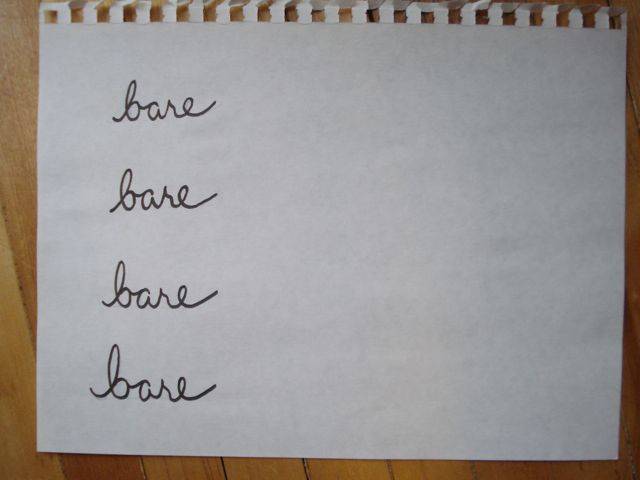 bare
bare
bare
bare